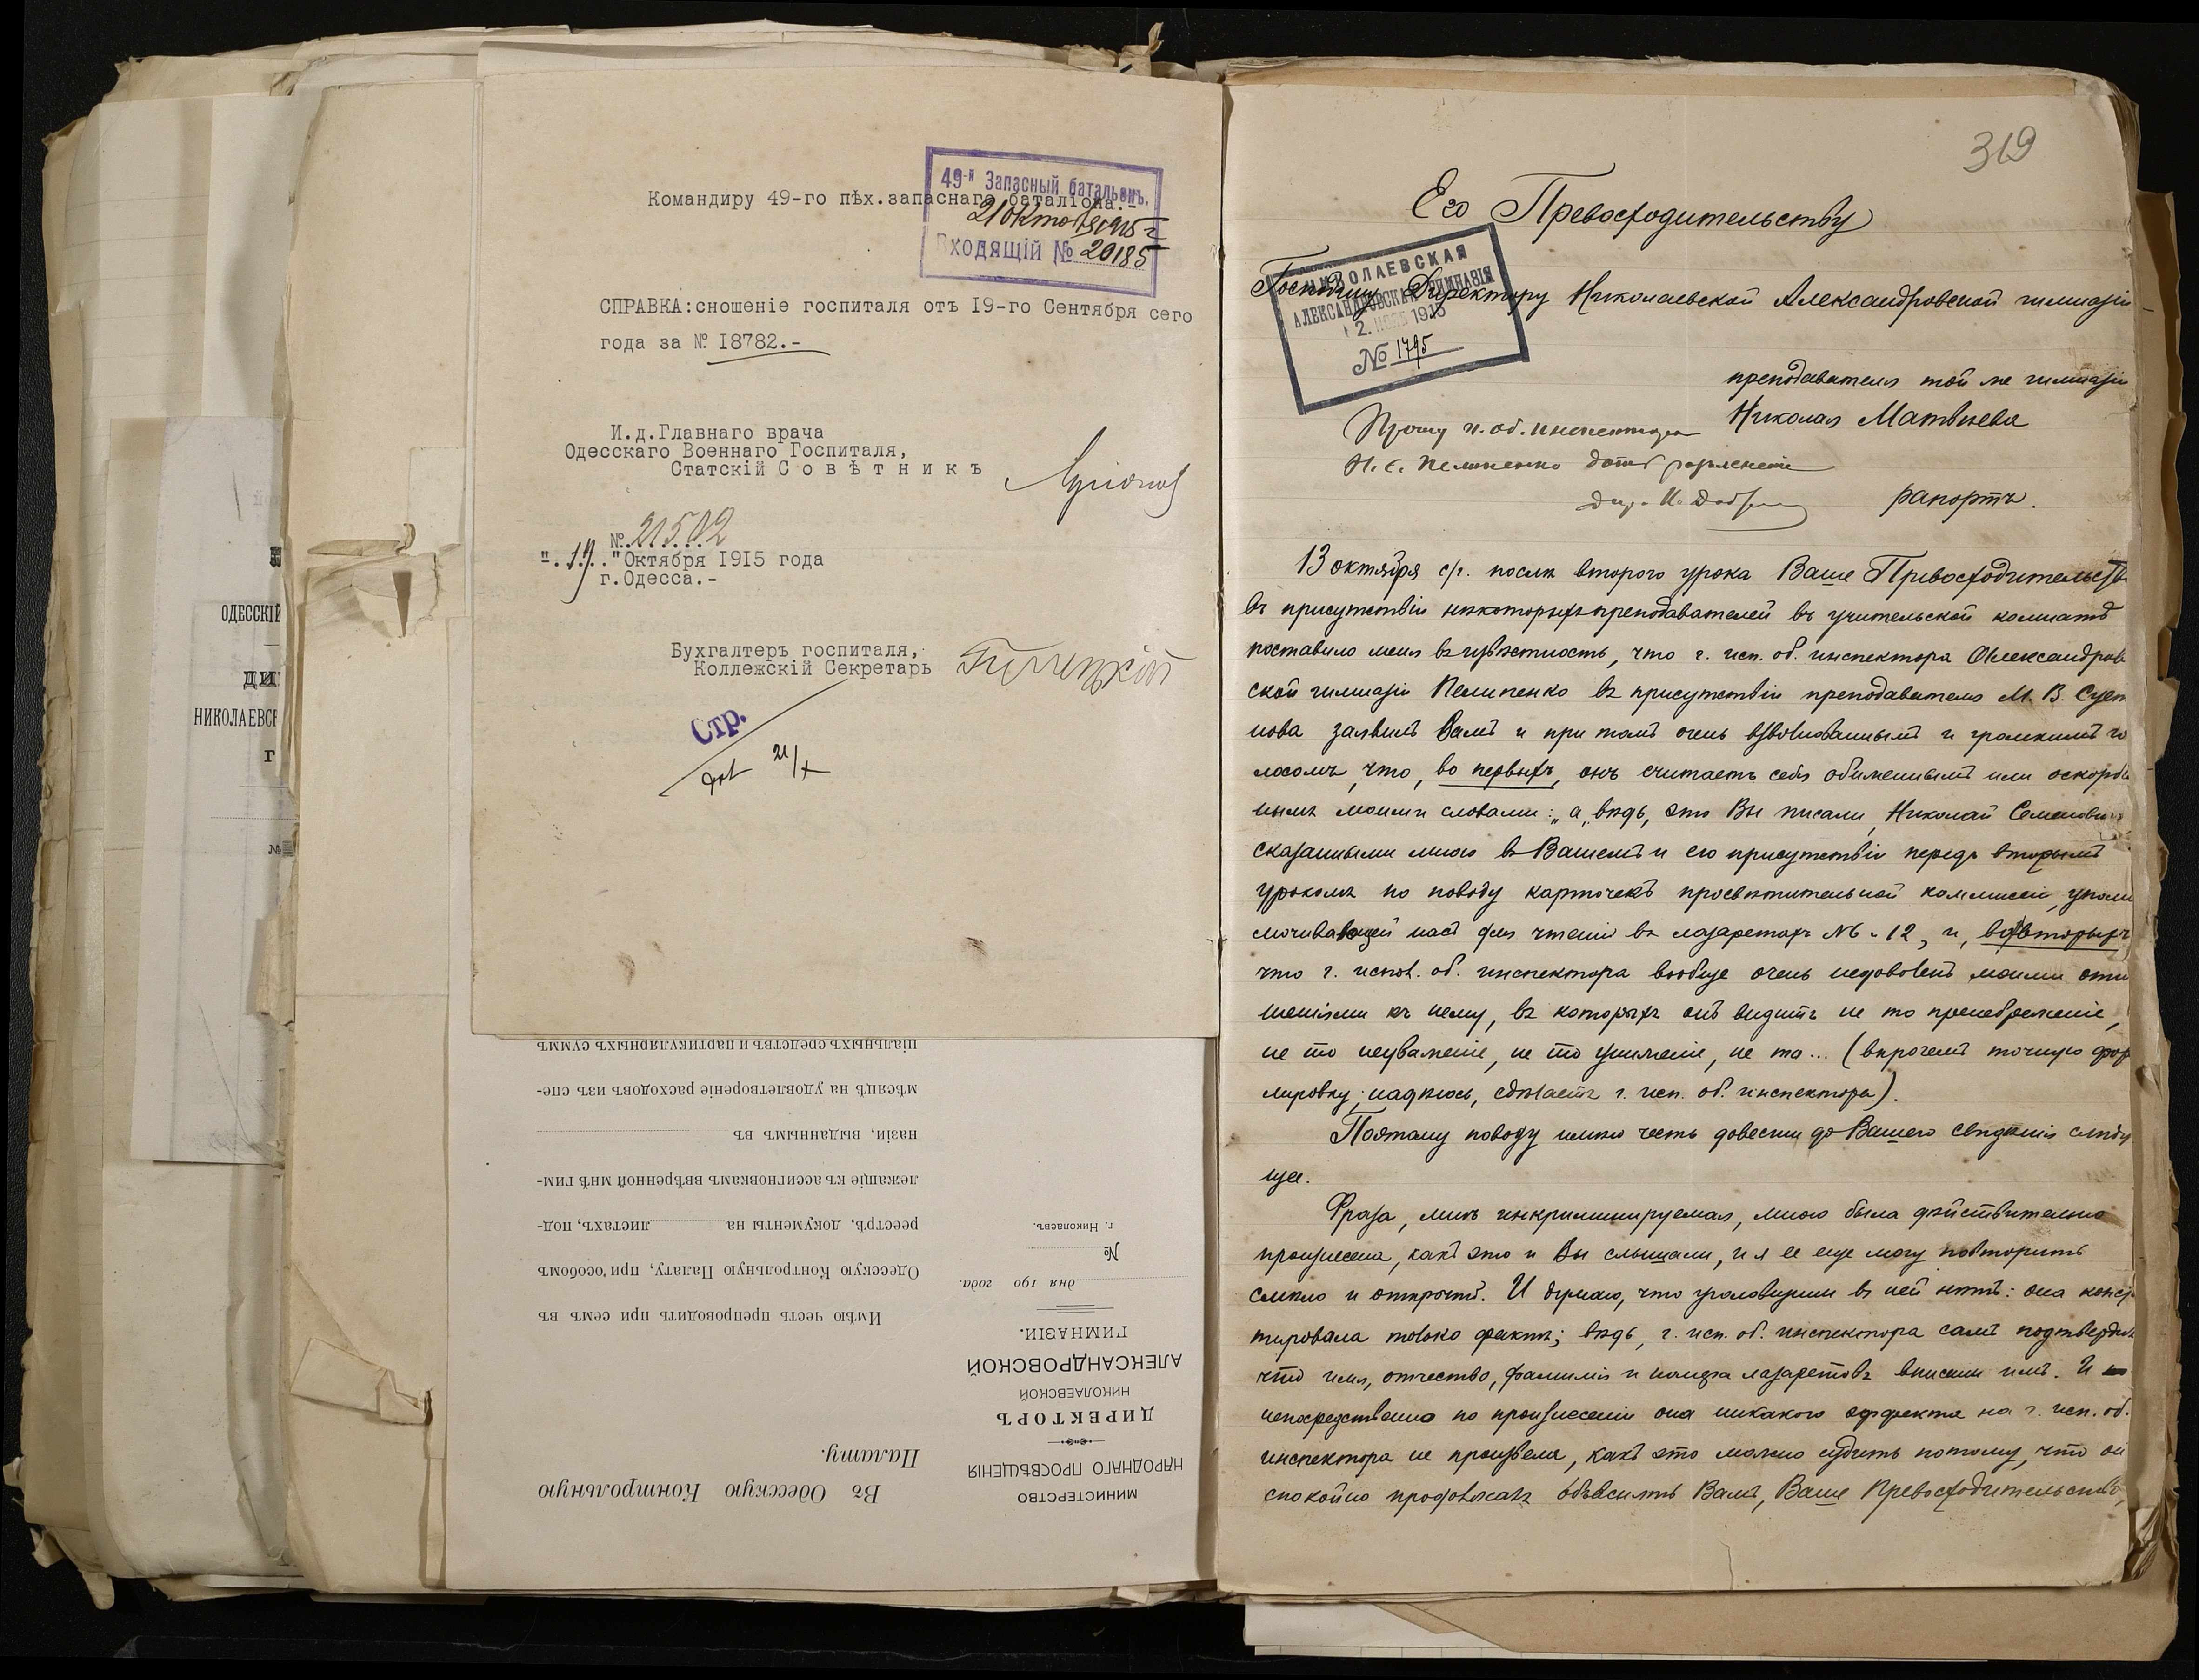 49-й Запасный батальонъ.
Командиру 49-го пѣх.запаснаго баталіона.-
21 Октяб 1915 г
Входящій № 20185
СПРАВКА:сношеніе госпиталя отъ I9-го Сентября сего
года за № I8782.-
И.д.Главнаго врача
Одесскаго Военнаго Госпиталя,
Статскій С о в ѣ т н и к ъ
№.21502
".19."Октября I9I5 года
г.Одесса.-
Бухгалтеръ госпиталя,
Коллежскій Секретарь
Стр.
21/X
ОДЕССКІЙ
НИКОЛАЕВСК
№
МИНИСТЕРСТВО
НАРОДНАГО ПРОСВѢЩЕНІЯ
ДИРЕКТОРЪ
НИКОЛАЕВСКОЙ
АЛЕКСАНДРОВСКОЙ
ГИМНАЗІИ.
дня 190 года.
№
г. Николаевъ.
Въ Одесскую Контрольную
Палату.
Имѣю честь препроводить при семъ въ
Одесскую Контрольную Палату, при особомъ
реестрѣ, документы на листахъ, под-
лежащіе къ ассигновкамъ ввѣренной мнѣ гим-
назіи, выданнымъ въ
мѣсяцѣ на удовлетвореніе расходовъ изъ спе-
ціальныхъ средствъ и партикулярныхъ суммъ
319
Его Превосходительству
НИКОЛАЕВСКАЯ
АЛЕКСАНДРОВСКАЯ ГИМНАЗІЯ
2. 1915
№ 1795
Господину Директору Николаевской Александровской гимназіи
преподавателя той же гимназіи
Николая Матвѣева
Прошу и. об. инспектора
Н. С. Пелипенко дать разъясненіе
рапортъ.
13 октября с/г. послѣ второго урока Ваше Превосходительств
въ присутствіи нѣкоторыхъ преподавателей въ учительской комнатѣ
поставило меня въ извѣстность, что г. исп. об. инспектора Александров
ской гимназіи Пелипенко въ присутствіи преподавателя М. В. Сует
нова заявилъ Вамъ и при томъ очень взволнованнымъ и громкимъ го
лосомъ, что, во первыхъ, онъ считаетъ себя обиженнымъ или оскорбл
нымъ моими словами: „а, вѣдь, это Вы писали, Николай Семенович
сказанными мною въ Вашемъ и его присутствіи передъ вторымъ
урокомъ по поводу карточекъ просвѣтительной коммисіи, уполн
мочивающей насъ для чтенія въ лазаретахъ №6 и 12, и, во вторыхъ,
что г. исп. об. инспектора вообще очень недоволенъ моими отн
шеніями къ нему, въ которыхъ онъ видитъ не то пренебреженіе,
не то неуваженіе, не то униженіе, не то... (впрочемъ точную фор
мировку, надѣюсь, сдѣлаетъ г. исп. об. инспектора).
Поэтому поводу имѣю честь довести до Вашего свѣдѣнія слѣду
щее.
Фраза, мнѣ инкриминируемая, мною была дѣйствительно
произнесена, какъ это и Вы слышали, и я ее еще могу повторить
смѣло и открыто. И думаю, что уголовщины въ ней нѣтъ: она конс
тировала только фактъ; вѣдь, г. исп. об. инспектора самъ подтвердилъ
что имя, отчество, фамилія и номера лазаретовъ вписаны имъ. И
непосредственно по произнесеніи она никакого эффекта на г. исп. об.
инспектора не произвела, какъ это можно судить потому, что он
спокойно продолжалъ объяснять Вамъ, Ваше Превосходительство,